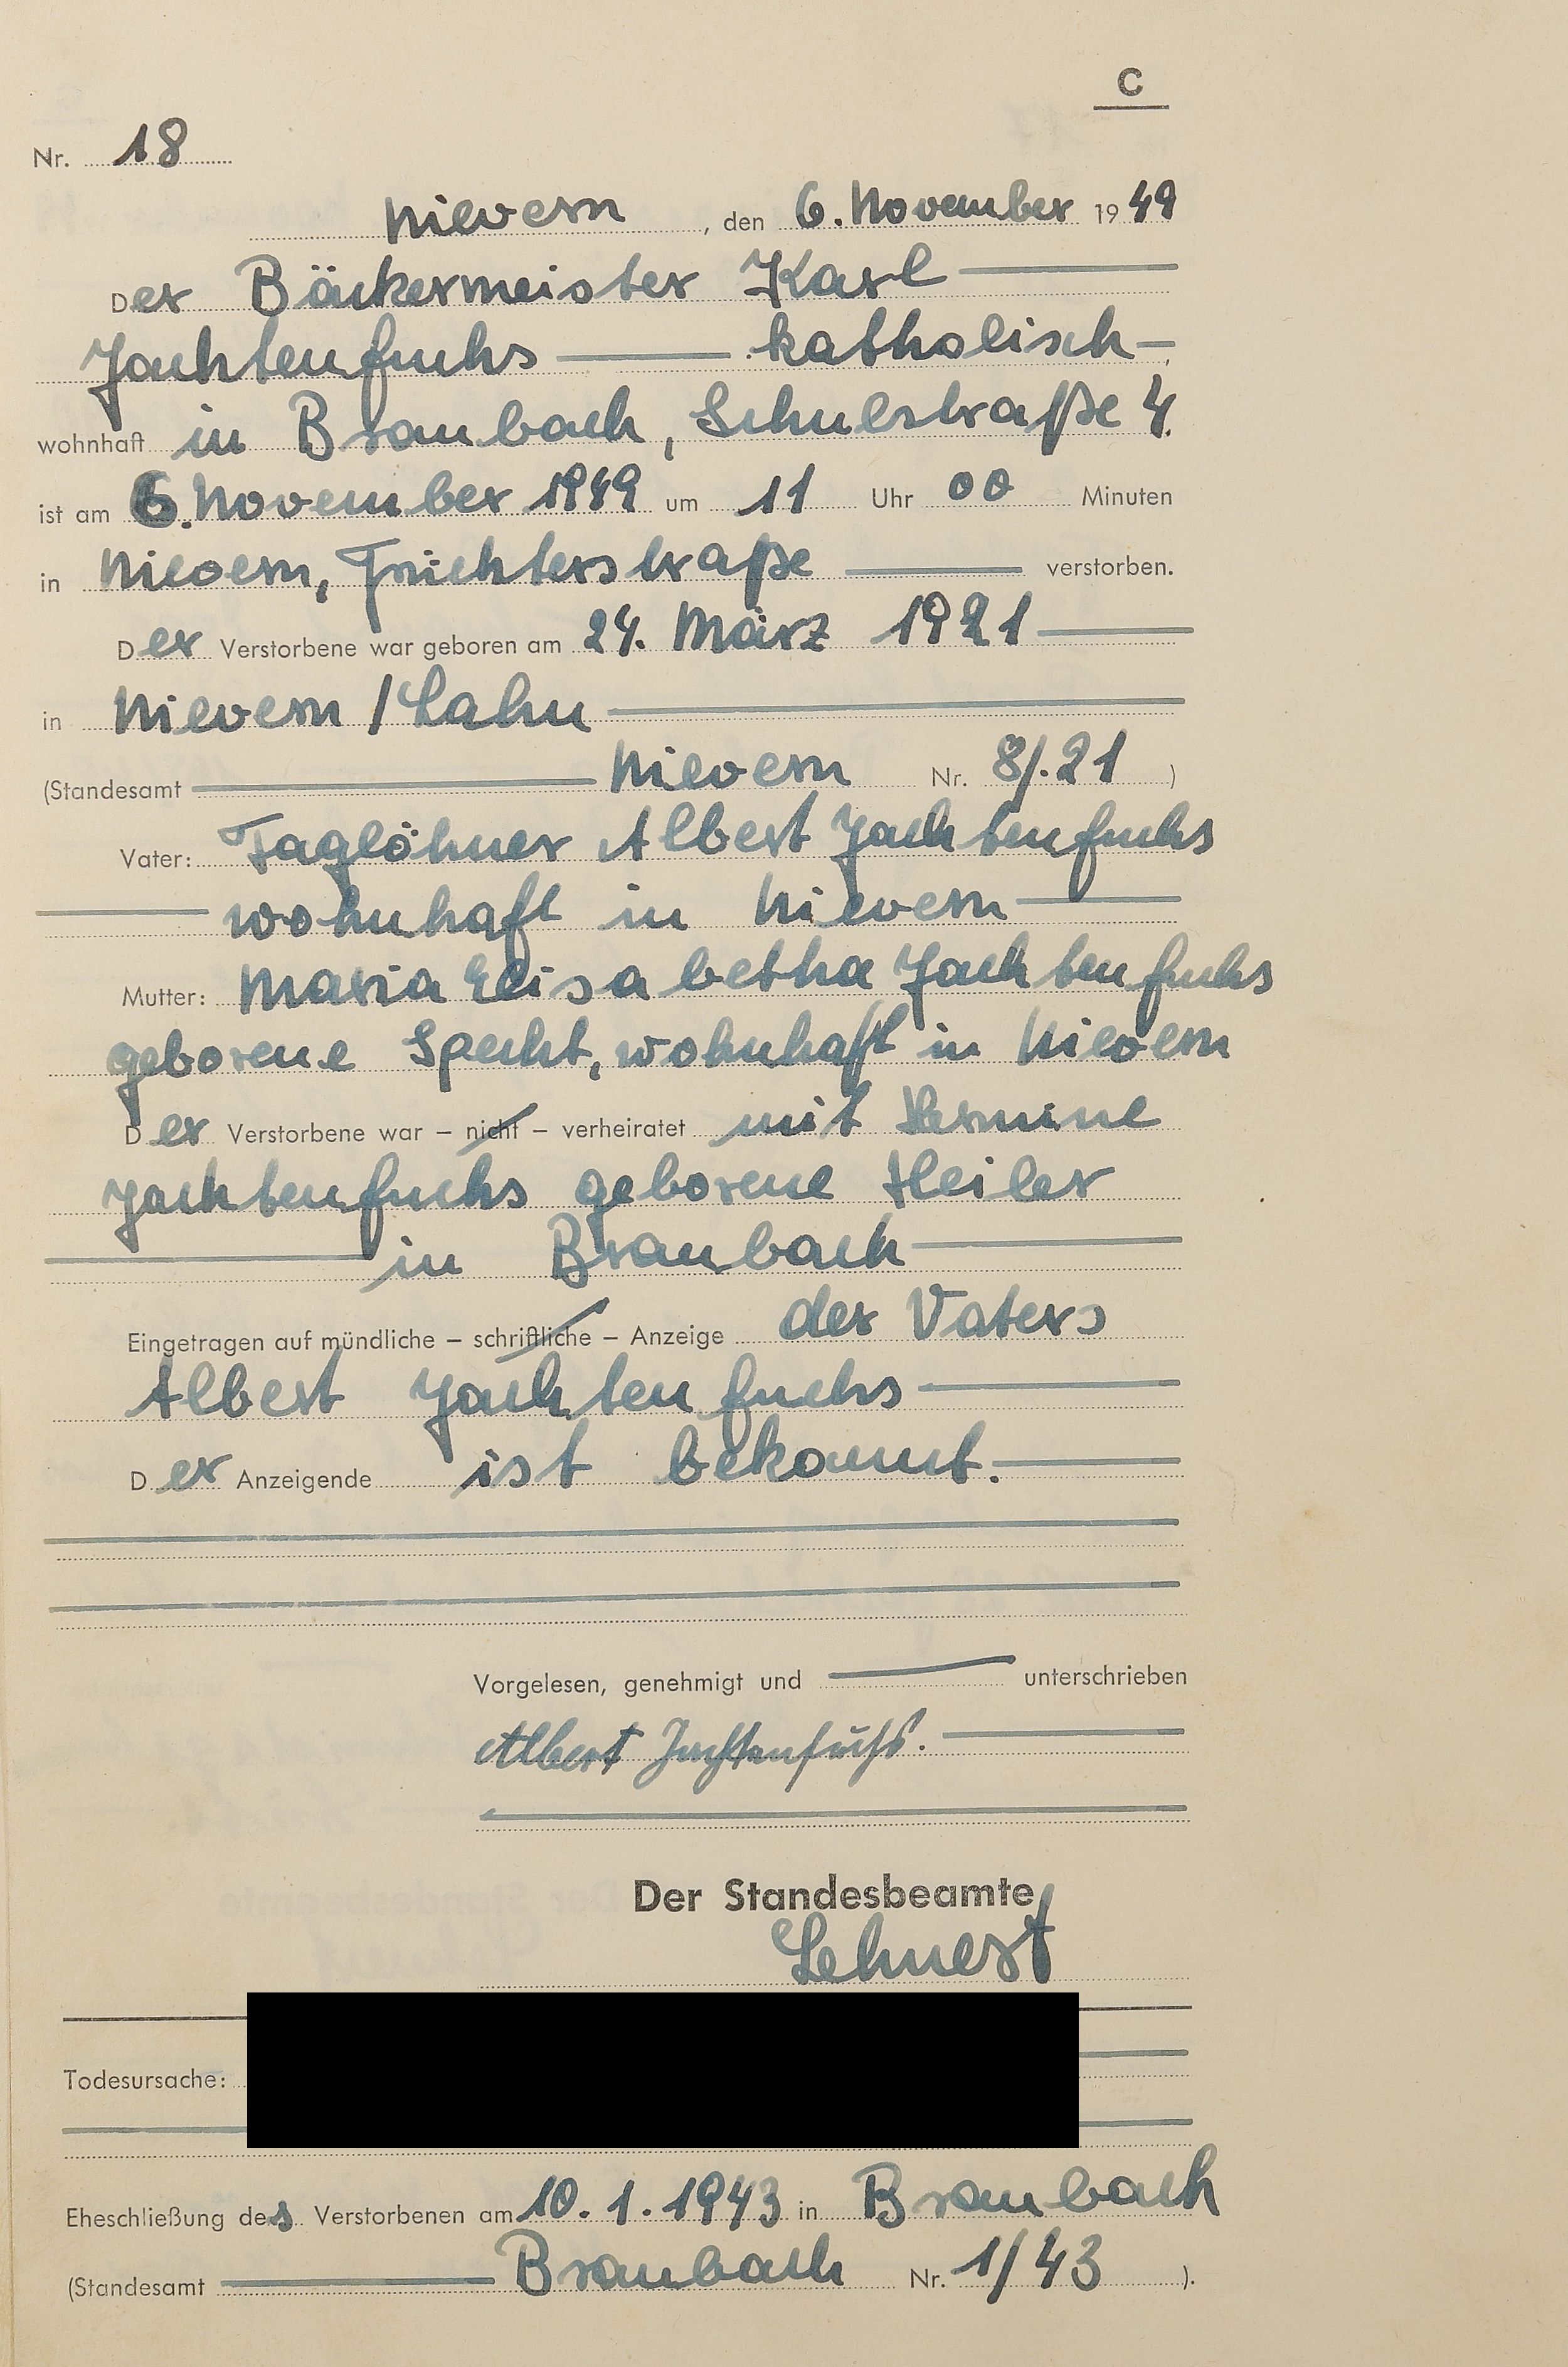 C
Nr. 18
Nievern, den 6. November 1949
Der Bäckermeister Karl
Jachtenfuchs katholisch
wohnhaft in Braubach, Schulstraße 4.
ist am 6. November 1949 um 11 Uhr 00 Minuten
in Nievern, Früchterstraße verstorben.
Der Verstorbene war geboren am 24. März 1921
in Nievern / Lahn
(Standesamt Nievern Nr. 8/.21 )
Vater: Taglöhner Albert Jachtenfuchs
wohnhaft in Nievern
Mutter: Maria Elisabetha Jachtenfuchs
geborene Specht, wohnhaft in Nievern
Der Verstorbene war – nicht – verheiratet mit Hermine
Jachtenfuchs geborene Heiler
in Braubach
Eingetragen auf mündliche – schriftliche – Anzeige des Vaters
Albert Jachtenfuchs
Der Anzeigende ist bekannt.
Vorgelesen, genehmigt und unterschrieben
Albert Jachtenfuchs.
Der Standesbeamte
Lehnert
Todesursache:
Eheschließung des Verstorbenen am 10. 1. 1943 in Braubach
(Standesamt Braubach Nr. 1/43 ).